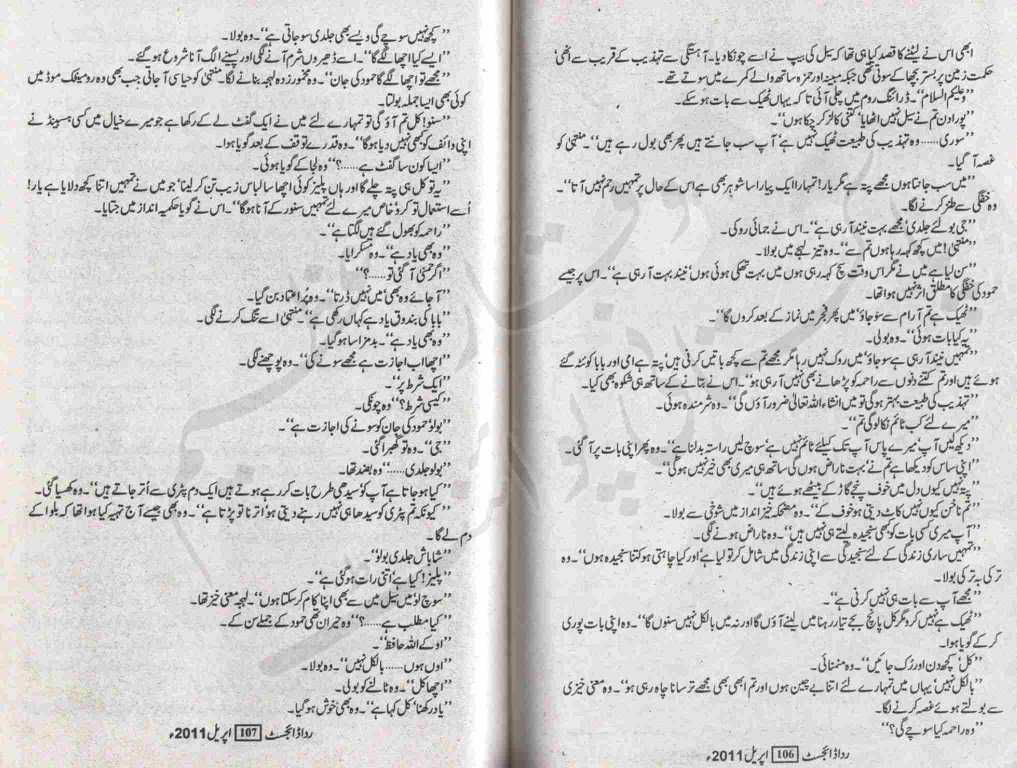 ابھی اس نے لیٹنے کا قصد کیا ہی تھا کہ سیل کی بیپ نے اسے چونکا دیا۔ آہستگی سے تہذیب کے قریب سے اٹھی‘
حکمت زمین پر بستر بچھا کے سوئی تھی جبکہ سبینہ اور حمزہ ساتھ والے کمرے میں سوتے تھے۔
’’وعلیکم السلام‘‘۔ ڈرائنگ روم میں چلی آئی تا کہ یہاں ٹھیک سے بات ہو سکے۔
’’پورا دن تم نے سیل نہیں اٹھایا‘ کتنی کالز کر چکا ہوں‘‘۔
’’سوری...... وہ تہذیب کی طبیعت ٹھیک نہیں ہے‘ آپ سب جانتے ہیں پھر بھی بول رہے ہیں‘‘۔ منتہیٰ کو
غصہ آ گیا۔
’’میں سب جانتا ہوں مجھے پتہ ہے مگر یار! تمہارا ایک پیارا سا شوہر بھی ہے اس کے حال پر تمہیں رحم نہیں آتا‘‘۔
وہ خفگی سے طنز کرنے لگا۔
’’جی بولئے جلدی‘ مجھے بہت نیند آ رہی ہے‘‘۔ اس نے جمائی روکی۔
’’منتہیٰ! میں کچھ کہہ رہا ہوں تم سے‘‘۔ وہ تیز لہجے میں بولا۔
’’سن لیا ہے میں نے مگر اس وقت سچ کہہ رہی ہوں میں بہت تھکی ہوئی ہوں‘ نیند بہت آ رہی ہے‘‘۔ اس پر جیسے
حمود کی خفگی کا مطلق اثر نہیں ہوا تھا۔
’’ٹھیک ہے تم آرام سے سو جاؤ‘ میں پھر فجر میں نماز کے بعد کروں گا‘‘۔
’’یہ کیا بات ہوئی‘‘۔ وہ بولی۔
’’تمہیں نیند آ رہی ہے سو جاؤ‘ میں روک نہیں رہا مگر مجھے تم سے کچھ باتیں کرنی ہیں‘ پتہ ہے امی اور بابا کوئٹہ گئے
ہوئے ہیں اور تم کتنے دنوں سے راحمہ کو پڑھانے بھی نہیں آ رہی ہو‘‘۔ اس نے بتانے کے ساتھ ہی شکوہ بھی کیا۔
’’تہذیب کی طبیعت بہتر ہو گی تو میں انشاء اللہ تعالیٰ ضرور آؤں گی‘‘۔ وہ شرمندہ ہوئی۔
’’میرے لئے کب ٹائم نکالو گی تم‘‘۔
’’دیکھ لیں آپ‘ میرے پاس آپ تک کیلئے ٹائم نہیں ہے‘ سوچ لیں راستہ بدلنا ہے‘‘۔ وہ پھر اپنی بات پر آ گئی۔
’’اپنی ساس کو دیکھا ہے تم نے‘ بہت ناراض ہوں گی ساتھ ہی میری بھی خیر نہیں ہو گی‘‘۔
’’پتہ نہیں کیوں دل میں خوف پنجے گاڑ کے بیٹھے ہوئے ہیں‘‘۔
’’تم ناخن کیوں نہیں کاٹ دیتی ہو خوف کے‘‘۔ وہ مضحکہ خیز انداز میں شوخی سے بولا۔
’’آپ میری کسی بات کو بھی سنجیدہ لیتے ہی نہیں ہیں‘‘۔ وہ ناراض ہونے لگی۔
’’تمہیں ساری زندگی کے لئے سنجیدگی سے اپنی زندگی میں شامل کر تو لیا ہے‘ اور کیا چاہتی ہو کتنا سنجیدہ ہوں‘‘۔ وہ
ترکی بہ ترکی بولا۔
’’مجھے آپ سے بات ہی نہیں کرنی ہے‘‘۔
’’ٹھیک ہے نہیں کرو مگر کل پانچ بجے تیار رہنا میں لینے آؤں گا اور نہ میں بالکل نہیں سنوں گا‘‘۔ وہ اپنی بات پوری
کر کے گویا ہوا۔
’’کل‘ کچھ دن اور رک جائیں‘‘۔ وہ منمنائی۔
’’بالکل نہیں‘ یہاں میں تمہارے لئے اتنا بے چین ہوں اور تم ابھی بھی مجھے ترسانا چاہ رہی ہو‘‘۔ وہ معنی خیزی
سے بولتے ہوئے غصہ کرنے لگا۔
’’وہ راحمہ کیا سوچے گی؟‘‘
ردا ڈائجسٹ 106 اپریل 2011ء
’’کچھ نہیں سوچے گی ویسے بھی جلدی سو جاتی ہے‘‘۔ وہ بولا۔
’’ایسے کیا اچھا لگے گا‘‘۔ اسے ڈھیروں شرم آنے لگی اور پسینے الگ آنا شروع ہو گئے۔
’’مجھے تو اچھا لگے گا حمود کی جان‘‘۔ وہ مخمور زدہ لہجہ بنانے لگا‘ منتہیٰ کو حیا سی آ جاتی جب بھی وہ رومینٹک موڈ میں
کوئی بھی ایسا جملہ بولتا۔
’’سنو! کل تم آؤ گی تو تمہارے لئے میں نے ایک گفٹ لے کے رکھا ہے جو میرے خیال میں کسی ہسبینڈ نے
اپنی وائف کو بھی نہیں دیا ہو گا‘‘۔ وہ قدرے توقف کے بعد گویا ہوا۔
’’ایسا کون سا گفٹ ہے......؟‘‘ وہ لجا کے گویا ہوئی۔
’’یہ تو کل ہی پتہ چلے گا اور ہاں پلیز کوئی اچھا سا لباس زیب تن کر لینا‘ جو میں نے تمہیں اتنا کچھ دلایا ہے یار!
اُسے استعمال تو کرو‘ خاص میرے لئے تمہیں سنور کے آنا ہو گا‘‘۔ اس نے گویا حکمیہ انداز میں جتایا۔
’’راحمہ کو بھول گئے ہیں لگتا ہے‘‘۔
’’وہ بھی یاد ہے‘‘۔ وہ مسکرایا۔
’’اگر حمنیٰ آ گئی تو......؟‘‘
’’آ جائے وہ بھی‘ میں نہیں ڈرتا‘‘۔ وہ پُر اعتماد بن گیا۔
’’بابا کی بندوق یاد ہے کہاں رکھی ہے‘‘۔ منتہیٰ اسے تنگ کرنے لگی۔
’’وہ بھی یاد ہے‘‘۔ بدمزا سا ہو گیا۔
’’اچھا اب اجازت ہے مجھے سونے کی‘‘۔ وہ پوچھنے لگی۔
’’ایک شرط پر‘‘۔
’’کیسی شرط؟‘‘ وہ چونکی۔
’’بولو‘ حمود کی جان کو سونے کی اجازت ہے‘‘۔
’’جی‘‘۔ وہ تو گھبرا گئی۔
’’بولو جلدی......‘‘ وہ بضد تھا۔
’’کیا ہو جاتا ہے آپ کو سیدھی طرح بات کر رہے ہوتے ہیں ایک دم پٹری سے اُتر جاتے ہیں‘‘۔ وہ کھسیا گئی۔
’’کیونکہ تم پٹری کو سیدھا ہی نہیں رہنے دیتی ہو‘ اترنا تو پڑتا ہے‘‘۔ وہ بھی جیسے آج تہیہ کیا ہوا تھا کہ بلوا کے
دم لے گا۔
’’شاباش جلدی بولو‘‘۔
’’پلیز! کیا ہے‘ اتنی رات ہو گئی ہے‘‘۔
’’سوچ لو‘ میں سیل میں سے بھی اپنا کام کر سکتا ہوں‘‘۔ لہجہ معنی خیز تھا۔
’’کیا مطلب ہے......؟‘‘ وہ حیران تھی حمود کے جملے سن کے۔
’’اوکے اللہ حافظ‘‘۔
’’اوں ہوں...... بالکل نہیں‘‘۔ وہ بولا۔
’’اچھا کل‘‘۔ وہ ٹالنے کو بولی۔
’’یاد رکھنا‘ کل کہا ہے‘‘۔ وہ بھی خوش ہو گیا۔
ردا ڈائجسٹ 107 اپریل 2011ء